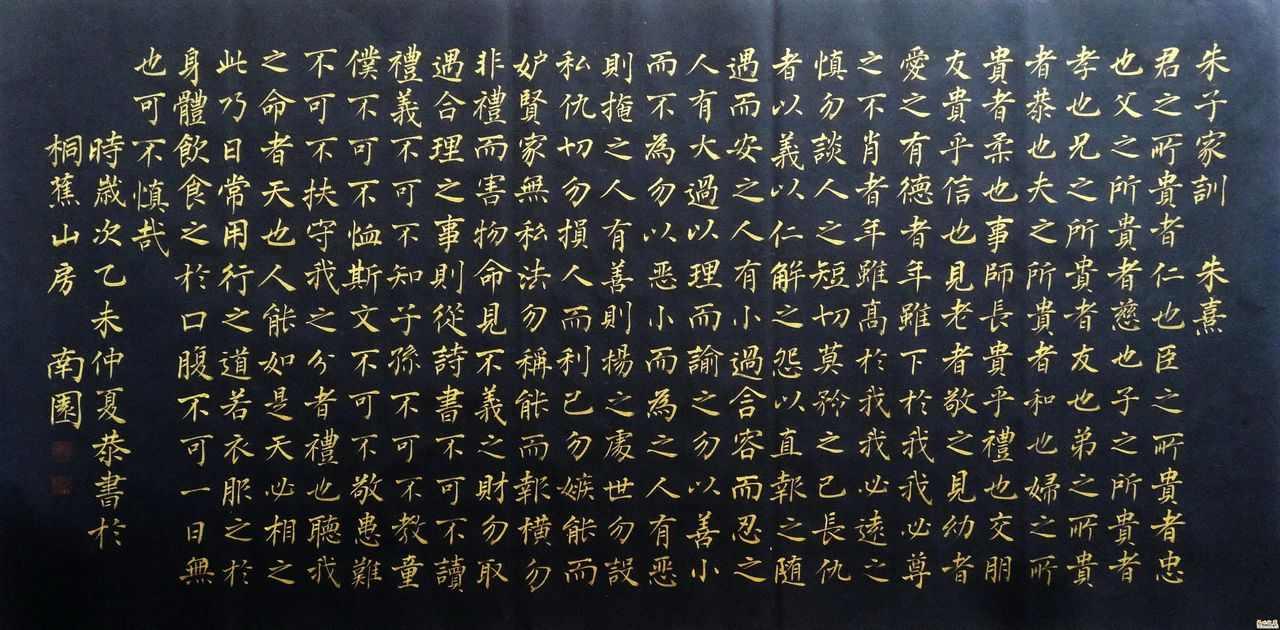 朱子家訓 朱熹
君之所貴者仁也臣之所貴者忠
也父之所貴者慈也子之所貴者
孝也兄之所貴者友也弟之所貴
者恭也夫之所貴者和也婦之所
貴者柔也事師長貴乎禮也交朋
友貴乎信也見老者敬之見幼者
愛之有德者年雖下於我我必尊
之不肖者年雖高於我我必遠之
慎勿談人之短切莫矜之己長仇
者以義以仁解之怨以直報之隨
遇而安之人有小過含容而忍之
人有大過以理而諭之勿以善小
而不為勿以惡小而為之人有惡
則掩之人有善則揚之處世勿設
私仇切勿損人而利己勿嫉能而
妒賢家無私法勿稱能而報橫勿
非禮而害物命見不義之財勿取
遇合理之事則從詩書不可不讀
禮義不可不知子孫不可不教童
僕不可不恤斯文不可不敬患難
不可不扶守我之分者禮也聽我
之命者天也人能如是天必相之
此乃日常用行之道若衣服之於
身體飲食之於口腹不可一日無
也可不慎哉
時歲次乙未仲夏恭書於
桐蕉山房 南園